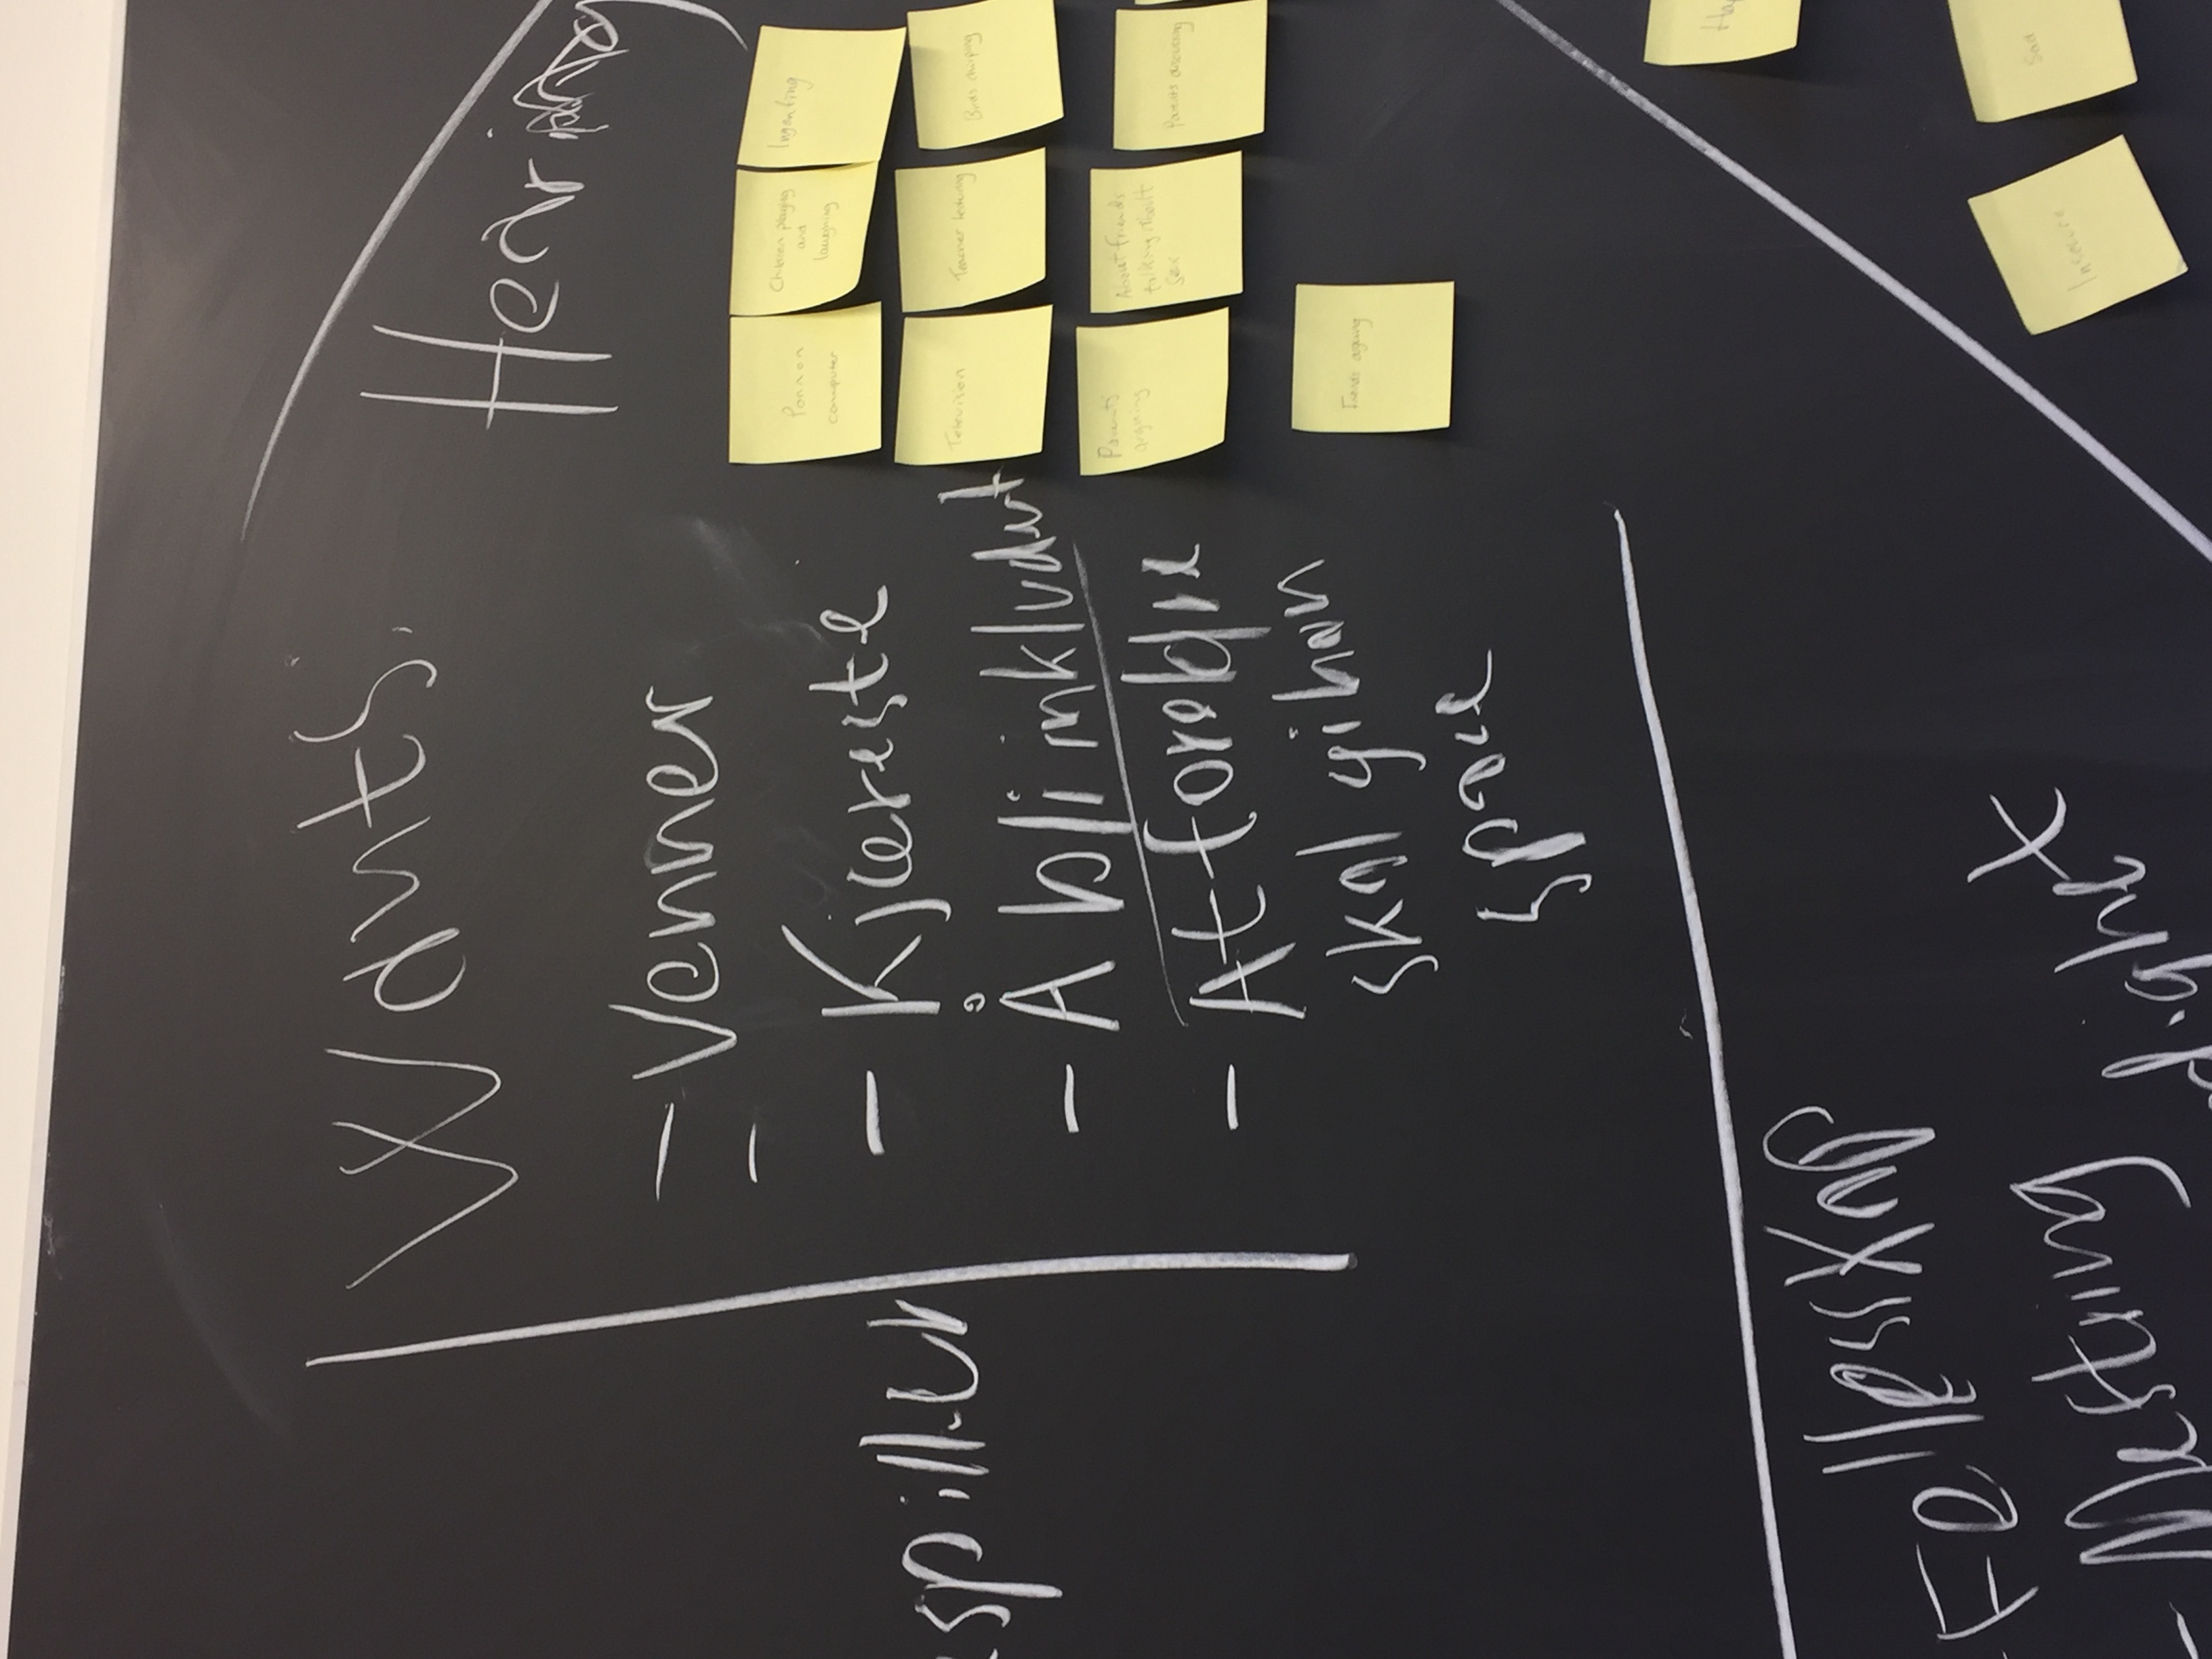 Wants:
Hearing
- Venner
-
- Kjæreste
- Å bli inkludert
- At foreldre
skal gi han
space
spiller
computer
Children playing
and
laughing
Ingenting
Television
Teacher lecturing
Birds chirping
Parents
arguing
About friends
talking about
sex
Parents discussing
Friends arguing
- Fellesskap
- Mestring
Insecure
Sad